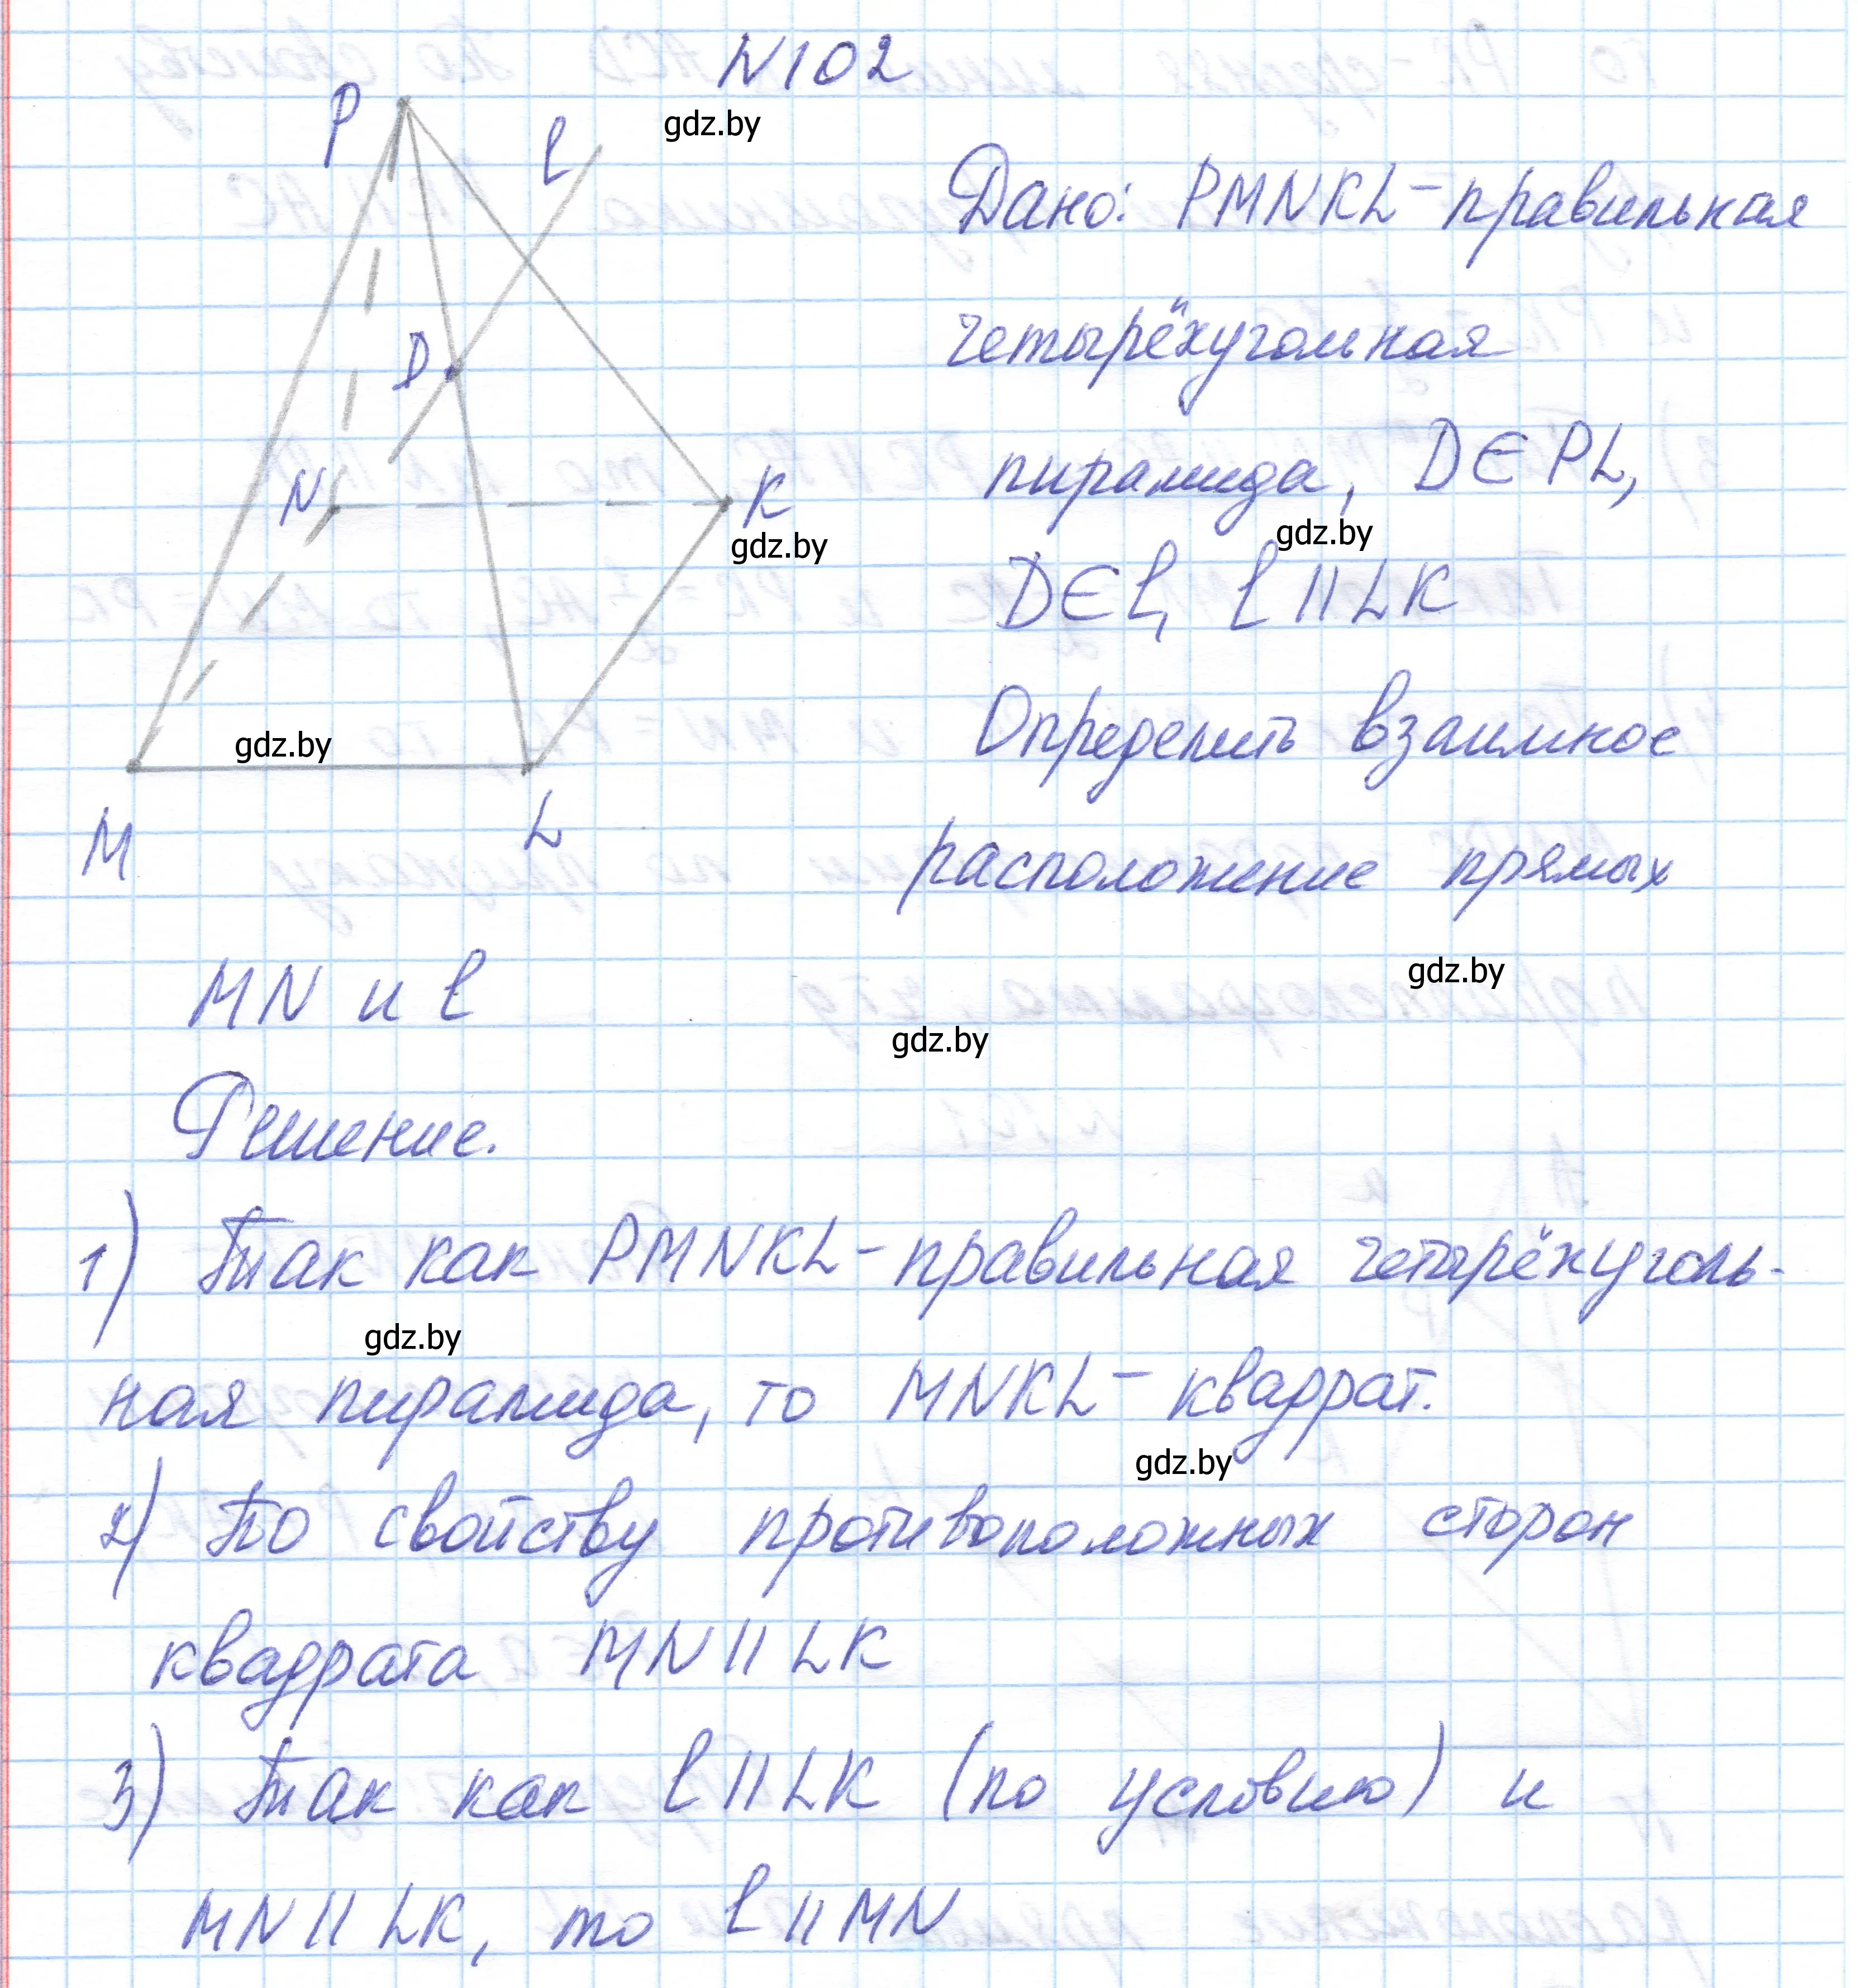 N102
gdz.by
P
l
Дано: PMNKL - правильная
D
четырёхугольная
N
K
gdz.by
пирамида, D∈PL,
gdz.by
D∈l, l || LK
gdz.by
Определить взаимное
M
L
расположение прямых
gdz.by
MN и l
gdz.by
Решение.
1) Так как PMNKL - правильная четырёхуголь-
gdz.by
ная пирамида, то MNKL - квадрат.
gdz.by
2) По свойству противоположных сторон
квадрата MN || LK
3) Так как l || LK (по условию) и
MN || LK, то l || MN